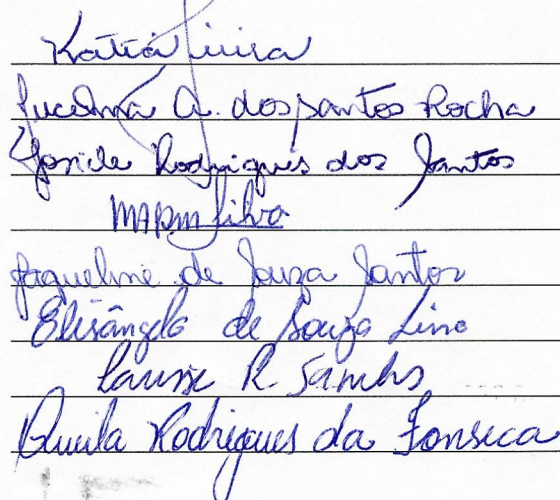 Katia
Lucelma A. dos Santos Rocha
Rodrigues dos Santos
Silva
Jaqueline de Souza Santos
Elisângela de Souza Lino
Larisse R Santos
Rodrigues da Fonseca